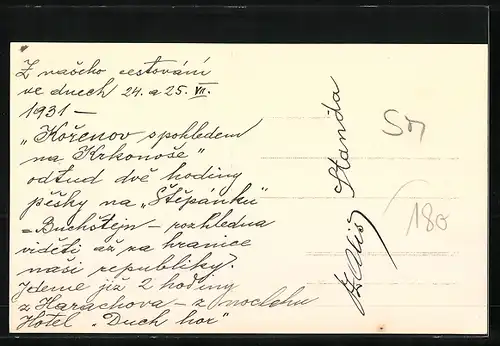 Z našeho cestování
ve dnech 24. a 25. VII.
1931 –
„Kořenov s pohledem
na Krkonoše“
odtud dvě hodiny
pěšky na „Štěpánku“
= Buchštejn – rozhledna
viděti až za hranice
naší republiky.
Jdeme již 2 hodiny
z Harachova – z noclehu
Hotel „Duch hor“
Standa
180